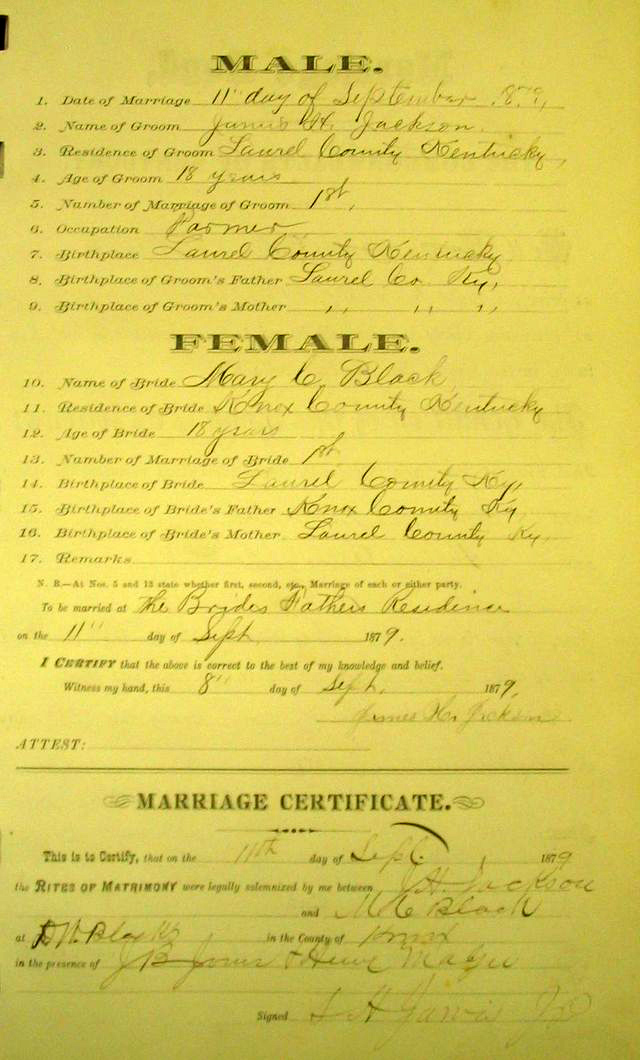 MALE.
1. Date of Marriage 11" day of September 1879,
2. Name of Groom James H. Jackson.
3. Residence of Groom Laurel County Kentucky,
4. Age of Groom 18 years
5. Number of Marriage of Groom 1st,
6. Occupation Farmer
7. Birthplace Laurel County Kentucky
8. Birthplace of Groom's Father Laurel Co. Ky,
9. Birthplace of Groom's Mother " " "
FEMALE.
10. Name of Bride Mary C Black
11. Residence of Bride Knox County Kentucky
12. Age of Bride 18 years
13. Number of Marriage of Bride 1st
14. Birthplace of Bride Laurel County Ky,
15. Birthplace of Bride's Father Knox County Ky
16. Birthplace of Bride's Mother Laurel County Ky
17. Remarks
N. B.—At Nos. 5 and 13 state whether first, second, etc., Marriage of each or either party.
To be married at the Brides Fathers Residence
on the 11" day of Sept 1879.
I CERTIFY that the above is correct to the best of my knowledge and belief.
Witness my hand, this 8" day of Sept, 1879,
James H. Jackson
ATTEST:
MARRIAGE CERTIFICATE.
This is to Certify, that on the 11th day of Sept. 1879
the RITES OF MATRIMONY were legally solemnized by me between J H. Jackson
and M C Black
at in the County of Knox
in the presence of J B
Signed